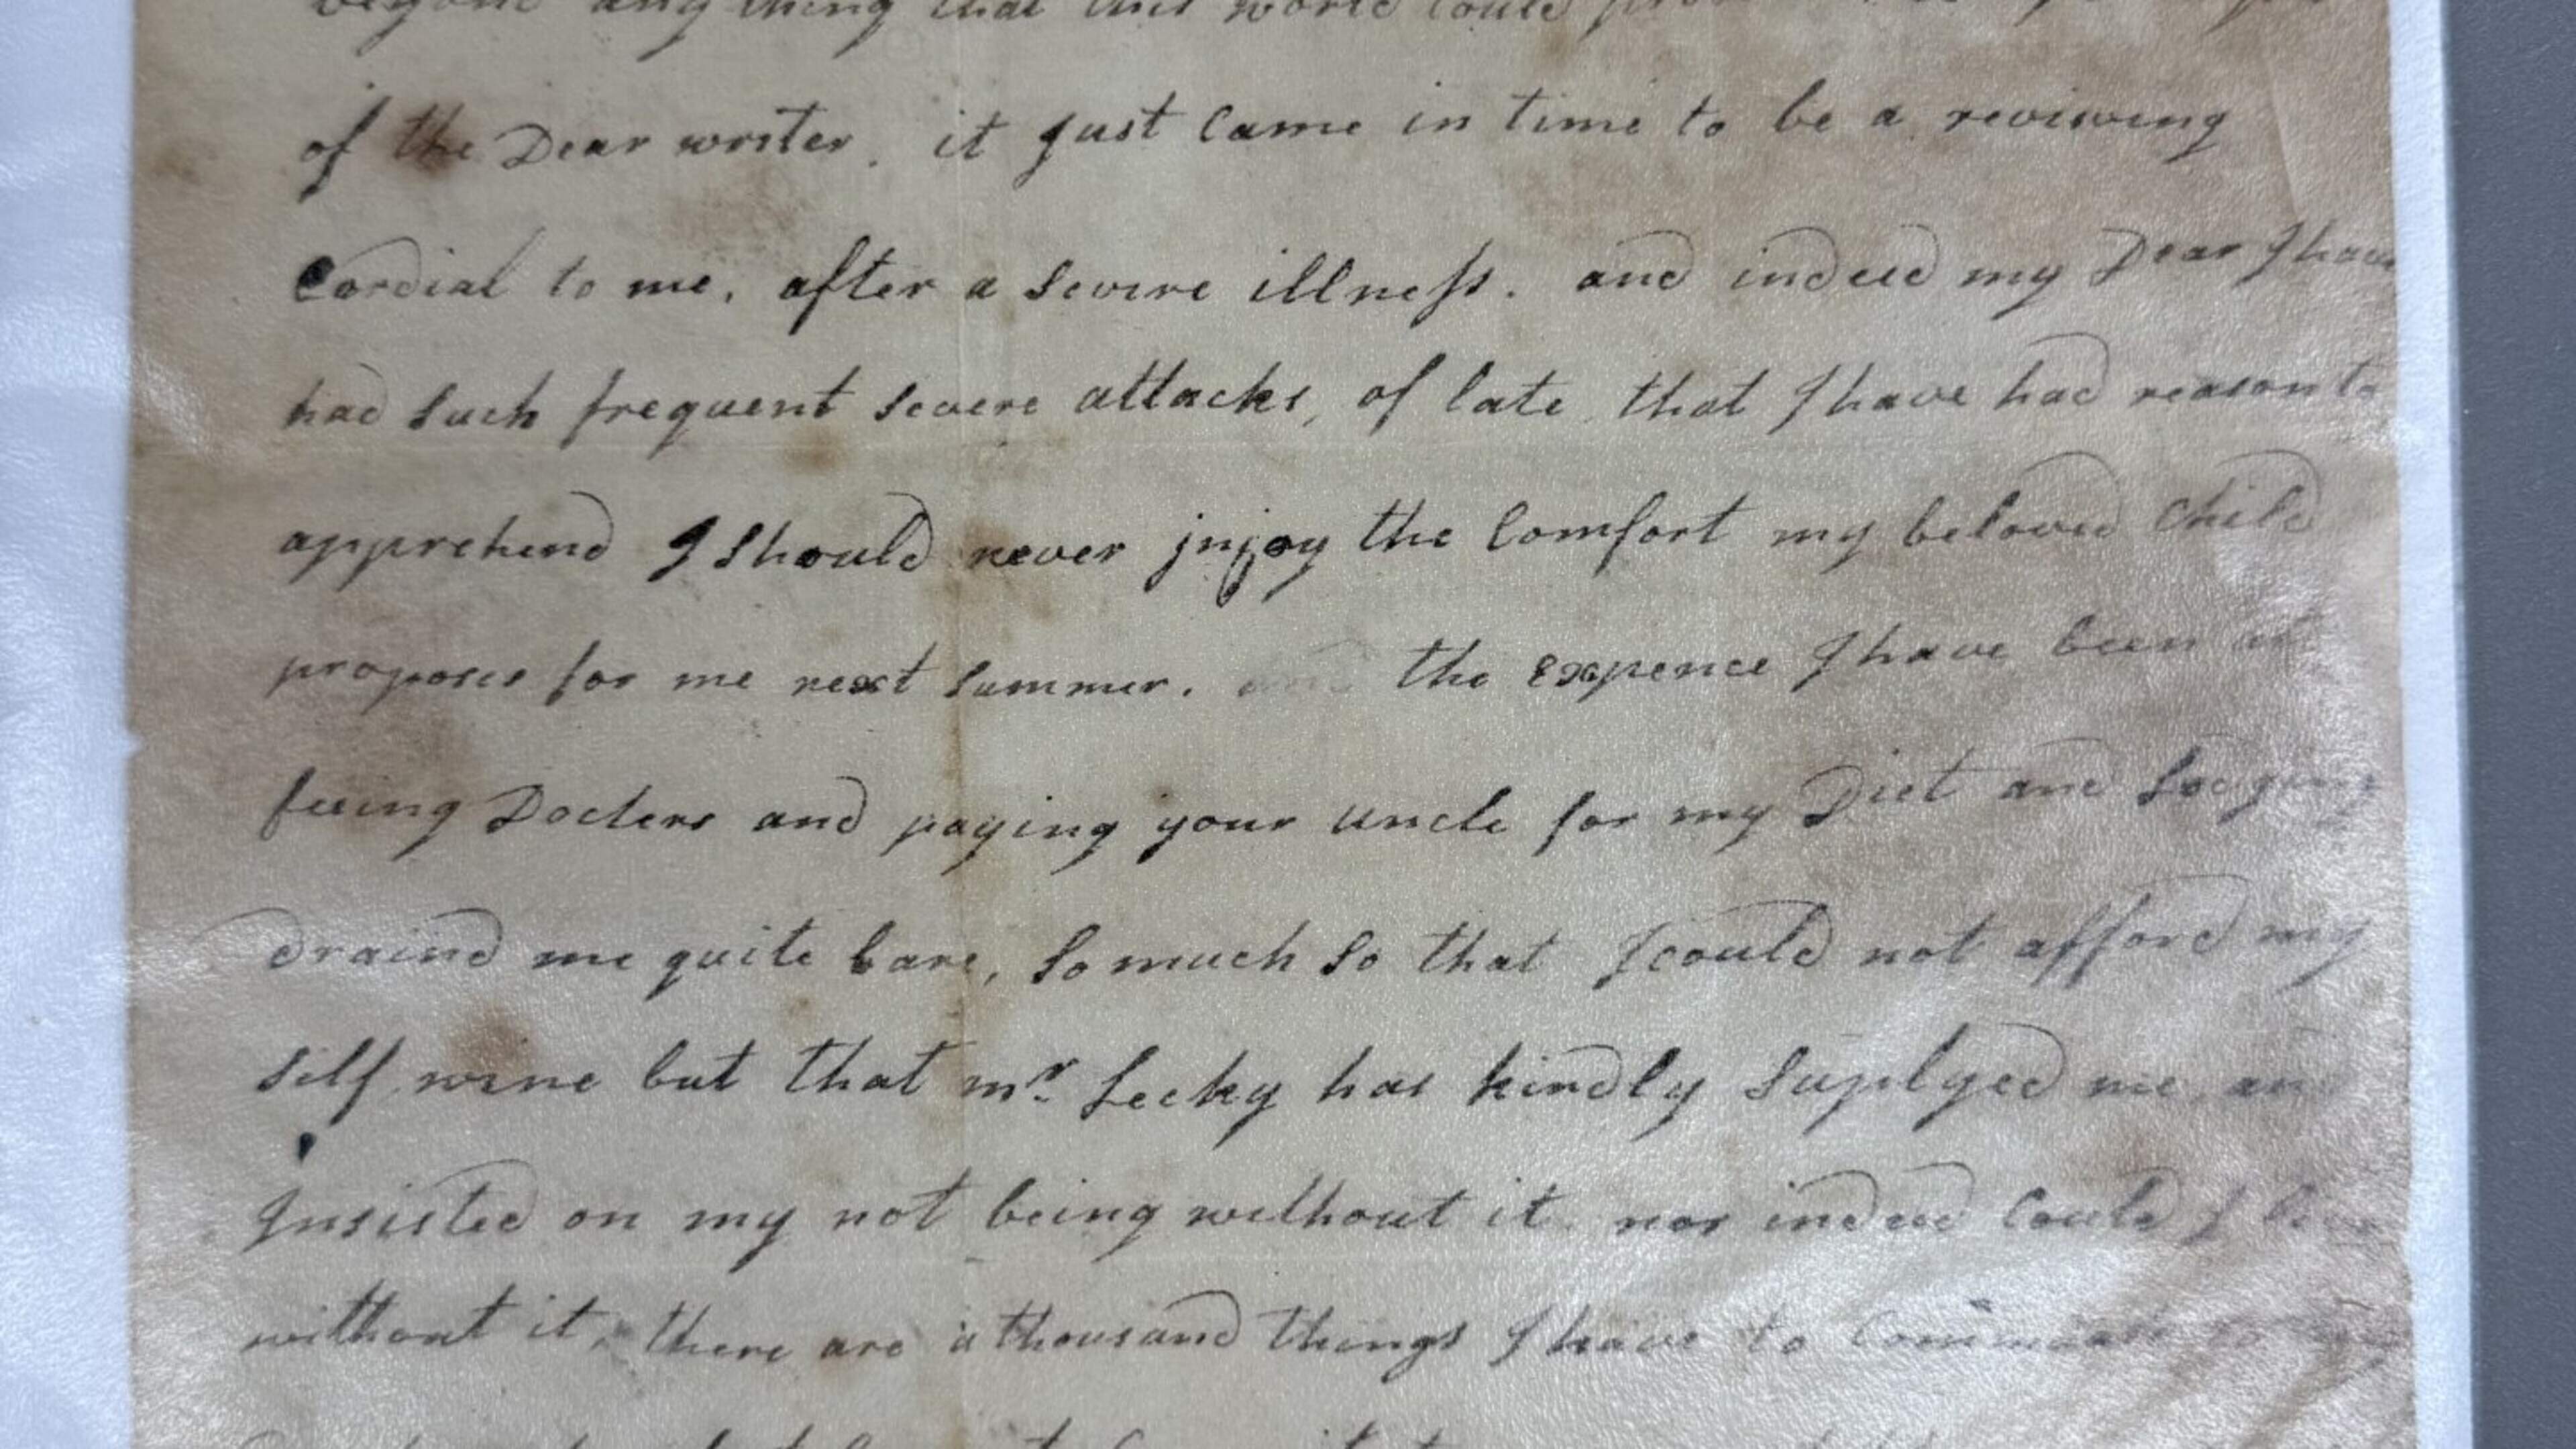 beyond any thing that this world could
of the Dear writer. it just Came in time to be a reviving
Cordial to me, after a severe illness. and indeed my Dear I have
had such frequent severe attacks, of late that I have had reason to
apprehend I should never jnjoy the Comfort my beloved Child
proposes for me next summer. the expence I have been at
feeing Docters and paying your uncle for my Diet and Lodging
draind me quite bare, so much so that I could not afford my
self wine but that mr. Lecky has kindly suplyed me, and
Insisted on my not being without it. nor indeed Could I
without it, there are a thousand things I have to